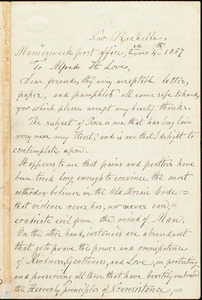 New Rochelle,
Mamaroneck post office, 4th 1867
To Alfred H. Love,
Dear friend, thy very acceptable letter,
paper, and pamphlets all came safe to hand,
for which please accept my hearty thanks.
The subject of Peace is one that has long been
very near my Heart, and one that I delight to
contemplate upon.
It appears to me that pains and penalties have
been tried long enough to convince the most
orthodox believer in the Old Mosaic Code that
that violence never has, nor never can
eradicate evil from the mind of Man.
On the other hand, instances are abundant
that go to prove the power and omnipotence
of Kindness, Gentleness, and Love, in protecting
and preserving all those that have heartily embraced
the Heavenly principles of Nonresistance